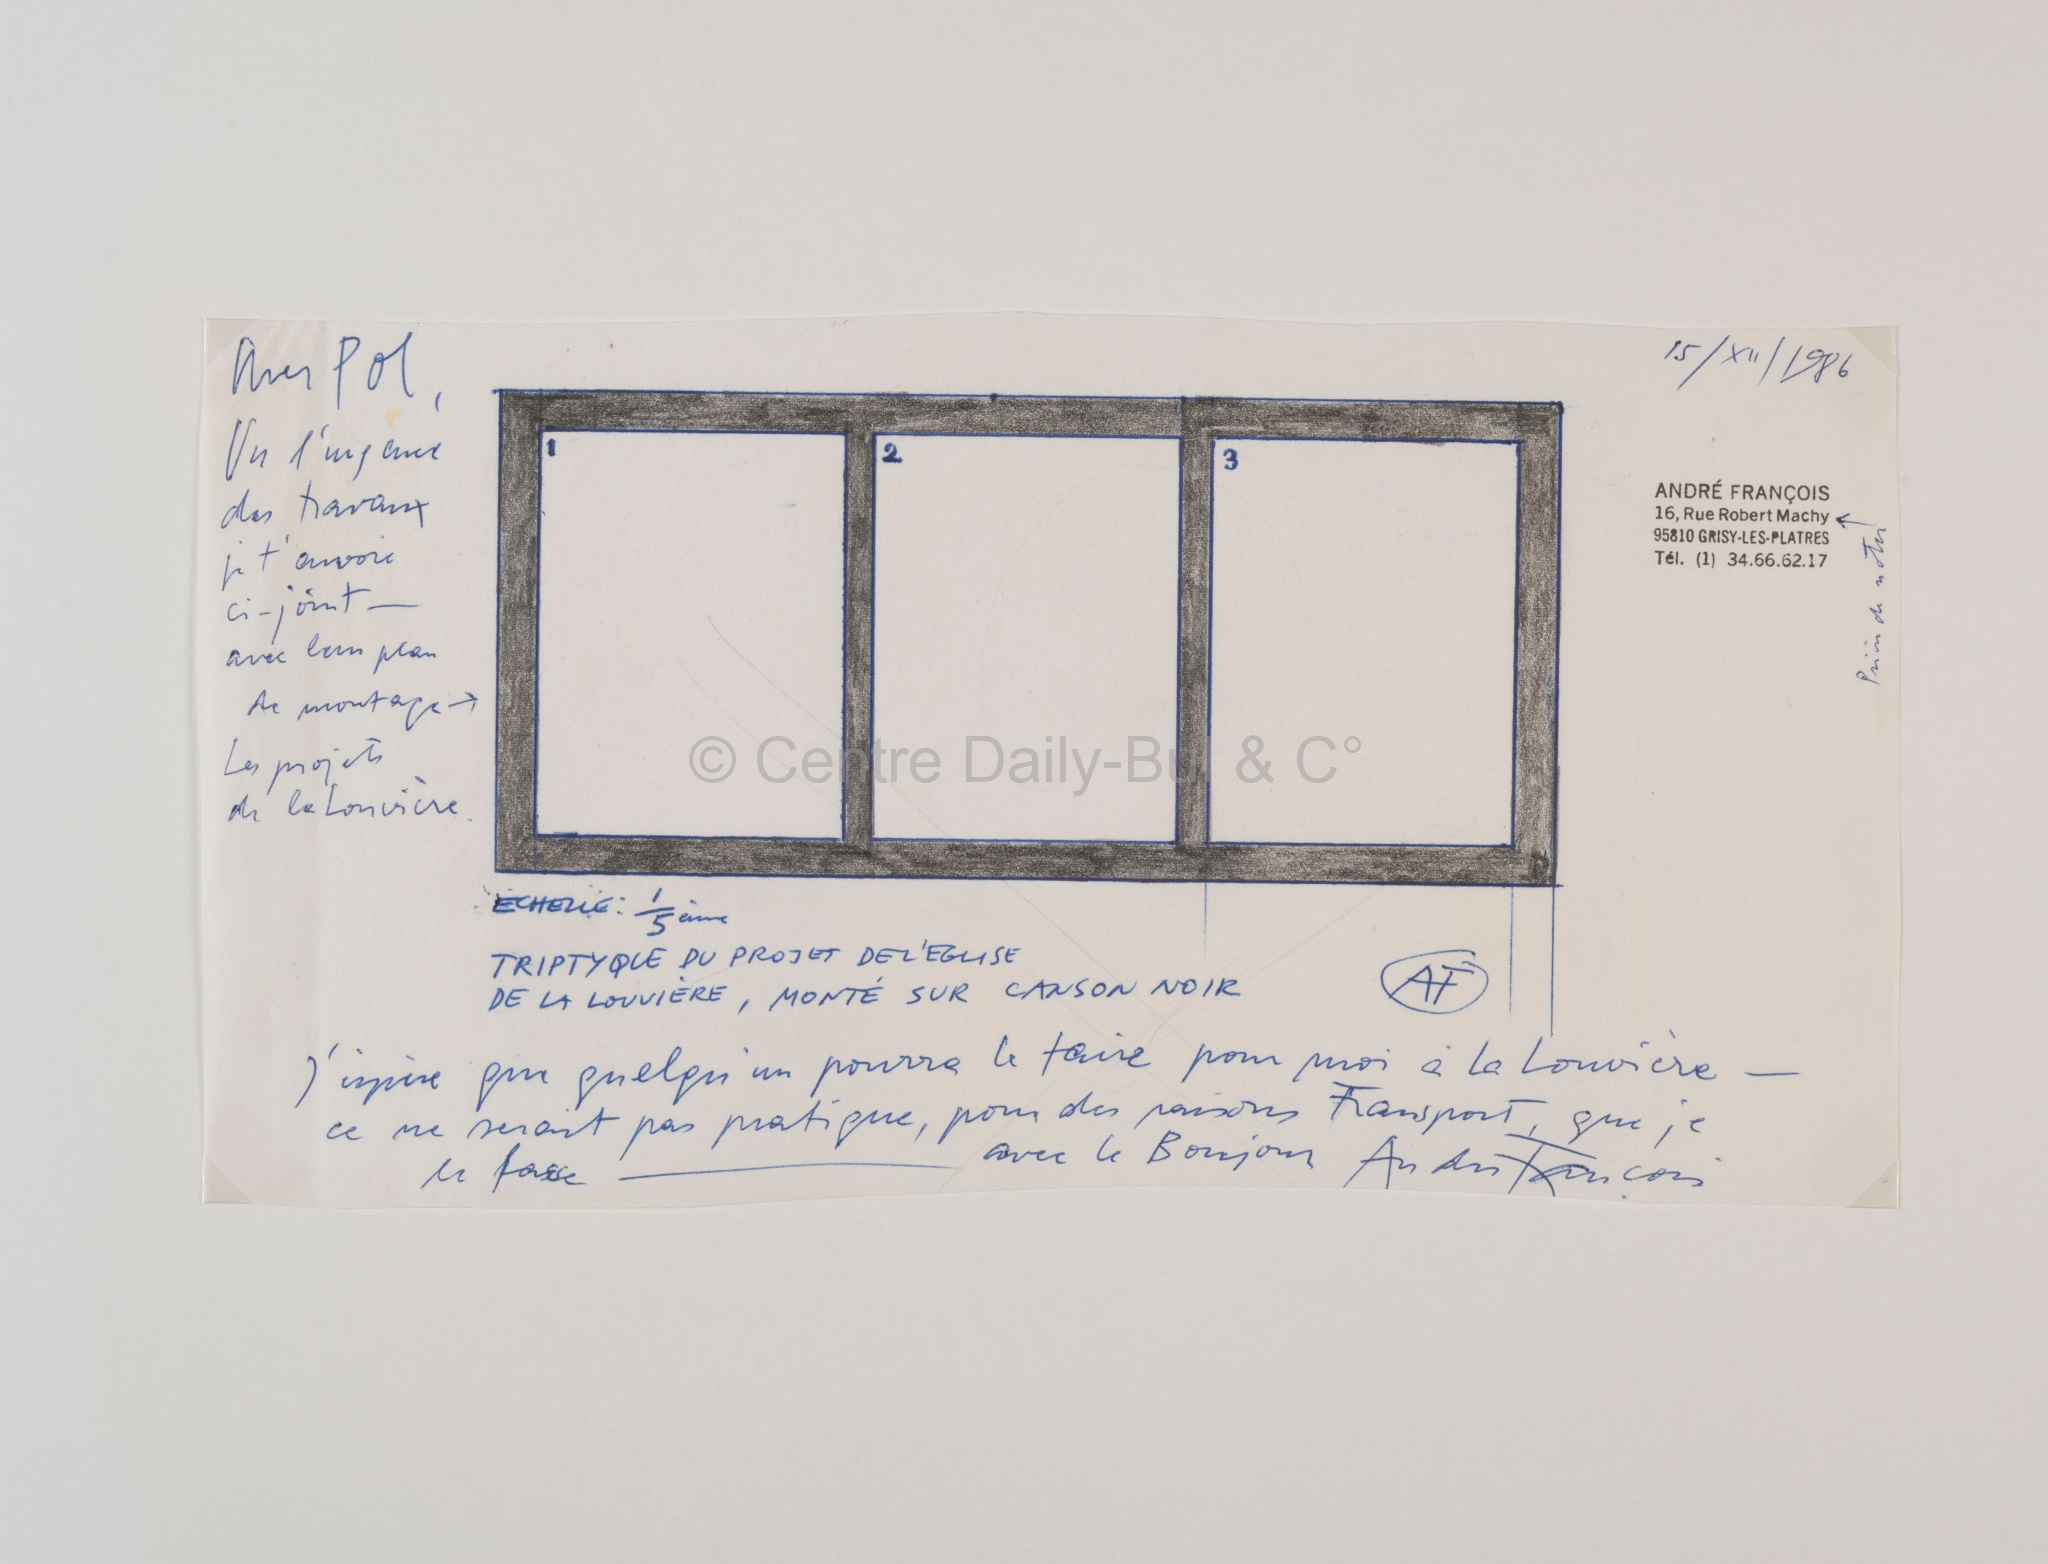 Cher Pol,
Vu l'urgence
des travaux
je t'envoie
ci-joint —
avec leur plan
de montage →
Les projets
de la Louvière.
15/XII/1986
1
2
3
ANDRÉ FRANÇOIS
16, Rue Robert Machy
95810 GRISY-LES-PLATRES
Tél. (1) 34.66.62.17
Prière de noter
© Centre Daily-Bul & C°
ECHELLE: 1/5 ème
TRIPTYQUE DU PROJET DE L'EGLISE
DE LA LOUVIÈRE, MONTÉ SUR CANSON NOIR
AF
J'espère que quelqu'un pourra le faire pour moi à la Louvière —
ce ne serait pas pratique, pour des raisons Transport, que je
le fasse — avec le Bonjour André François